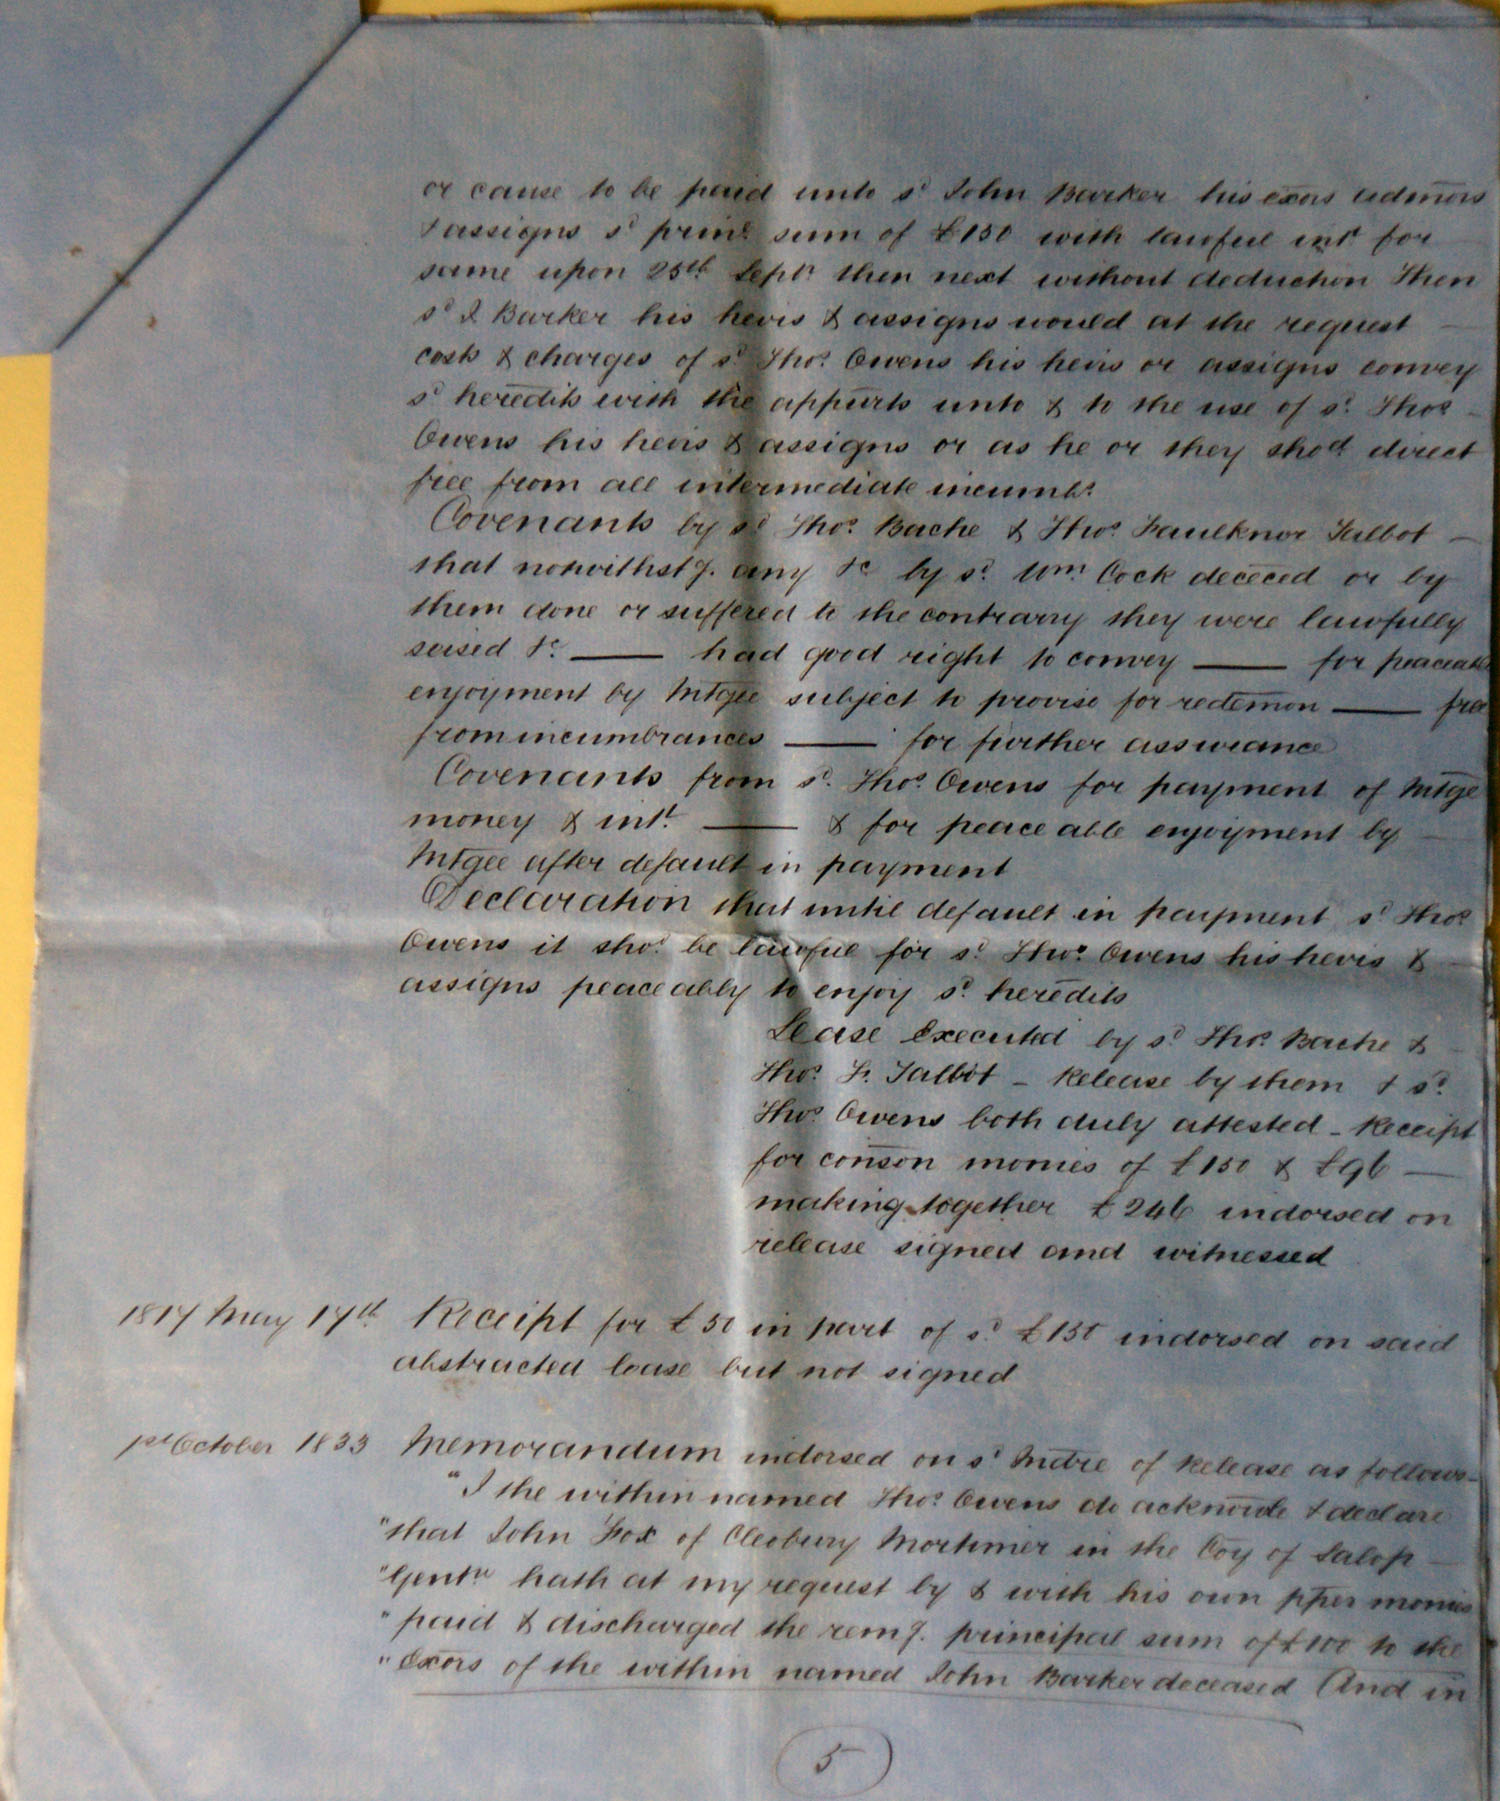 or cause to be paid unto sd John Barker his exors admors
& assigns sd prinl sum of £150 with lawful intt for
same upon 25th Septr then next without deduction Then
sd J Barker his heirs & assigns would at the request
costs & charges of sd Thos Owens his heirs or assigns convey
sd heredits with the appurts unto & to the use of sd Thos
Owens his heirs & assigns or as he or they shod direct
free from all intermediate incumbs
Covenants by sd Thos Bache & Thos Faulknor Talbot
that notwithstg. any &c by sd Wm Cock dececed or by
them done or suffered to the contrary they were lawfully
seised &c. —— had good right to convey —— for peaceable
enjoyment by Mtgee subject to proviso for redemon —— free
from incumbrances —— for further assurance
Covenants from sd Thos Owens for payment of Mtge
money & intt —— & for peaceable enjoyment by
Mtgee after default in payment
Declaration that until default in payment sd Thos
Owens it shod be lawful for sd Thos Owens his heirs &
assigns peaceably to enjoy sd heredits
Lease Executed by sd Thos Bache &
Thos F. Talbot - Release by them & sd
Thos Owens both duly attested - Receipt
for conson monies of £150 & £96
making together £246 indorsed on
release signed and witnessed
1817 May 17th Receipt for £50 in part of sd £150 indorsed on said
abstracted lease but not signed
1st October 1833 Memorandum indorsed on sd Indre of Release as follows
"I the within named Thos Owens do acknowle & declare
"that John Fox of Cleobury Mortimer in the Coy of Salop
"Gentn hath at my request by & with his own pper monies
"paid & discharged the remg. principal sum of £100 to the
"Exors of the within named John Barker deceased And in
5